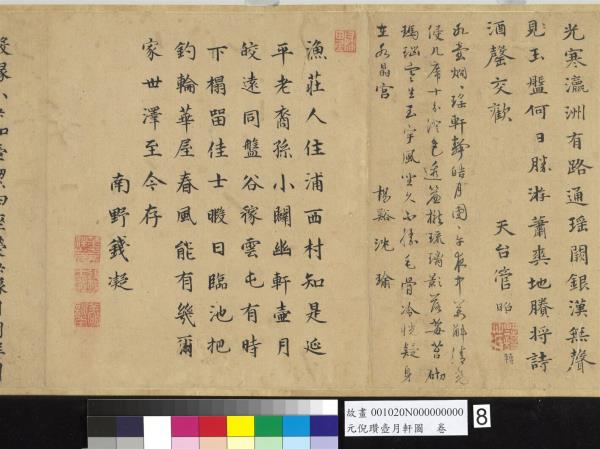 光寒瀛洲有路通瑤闕銀漢無聲
見玉盤何日勝游蕭爽地賸將詩
酒罄交歡
天台管昭
永堂炯瑤軒靜皓月圓午夜中
侵几席十分澄色透簾櫳琉璃影落莓苔砌
瑪瑙 生玉宇風坐久不勝毛骨冷恍疑身
在水晶宮
楊谿沈瑜
漁莊人住浦西村知是延
平老裔孫小闢幽軒壺月
皎遠同盤谷稼雲屯有時
下榻留佳士暇日臨池把
釣輪華屋春風能有幾爾
家世澤至今存
南野錢凝
故畫 001020N000000000
元倪瓚壺月軒圖 卷
8